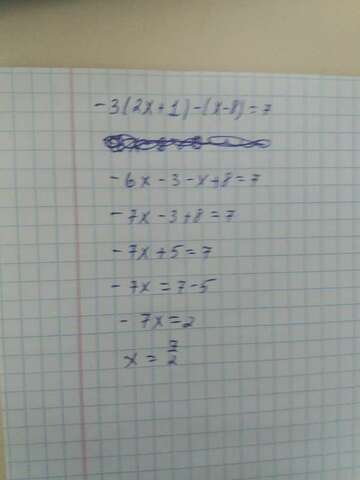 -3(2x+1)-(x-8)=7
-6x-3-x+8=7
-7x-3+8=7
-7x+5=7
-7x=7-5
-7x=2
x=7/2